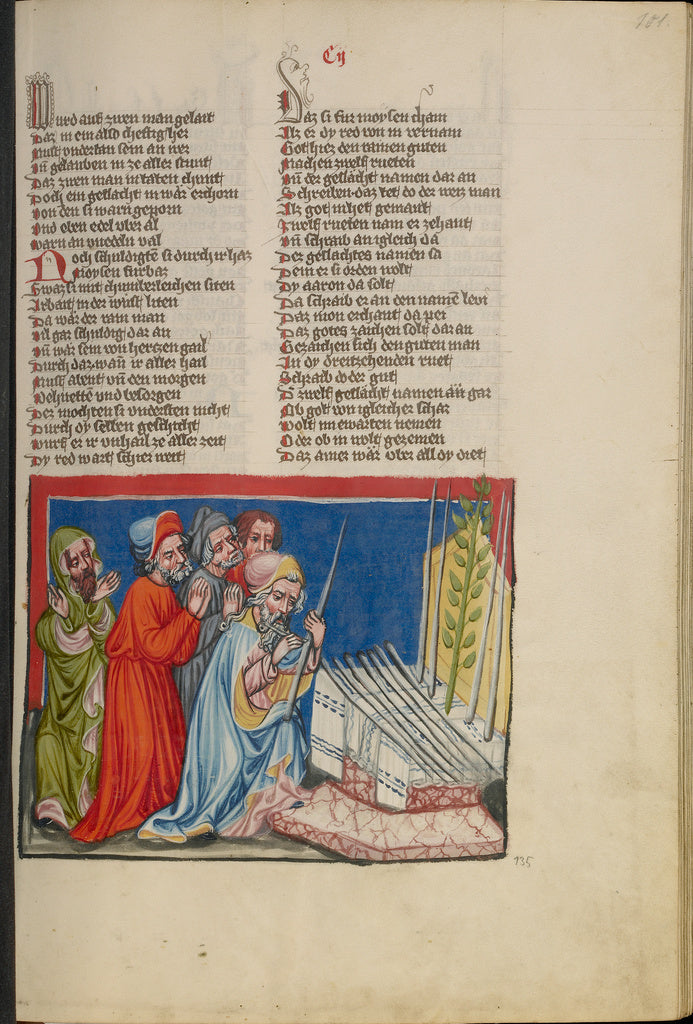 101.
Cij
Wurd aus zwen man gelait
Daz in ein also chreftig her
Must vndertan sein an wer
Vn̄ gelauben in ze aller stunt
Daz zwen man in taten chunt
Doch ein geslächt in wär erchorn
Von den si warn geporn
Vnd oben edel vber al
Warn an vnedeln val
Noch schuldigtē si durch ir haz
Moysen furbaz
Swaz si mit chumberleichen siten
Arbait in der wust liten
Da wär der rain man
Vil gar schuldig dar an
Vn̄ wär sein von herczen gail
Durch daz wan̄ ir aller hail
Must abent vn̄ den morgen
Behuetten vnd besorgen
Der mochten si vndersten nicht
Durch dy selben geschicht
Wurf er ir vnhail ze aller zeit
Dy red wart schier weit
Daz si fur moysen cham
Als er dy red von in vernam
Got hiez den rainen guten
Machen zwelf rueten
Vn̄ der geslächt namen dar an
Schreiben daz tet do der weis man
Als got in het gemant
Zwelf rueten nam er zehant
Vn̄ schraib an igleich da
Der geslachtes namen sa
Dem er si orden wolt
Dy aaron da solt
Da schraib er an den namē levi
Daz mon erchant da pei
Daz gotes zaichen solt dar an
Bezaichen sich den guten man
An dy dreitzehenden ruet
Schraib do der gut
D' zwelf geslächt namen an̄ gar
Ob got von igleicher schar
Wolt im ewarten nemen
Oder ob in wolt gezemen
Daz ainer wär vber all dy diet
135